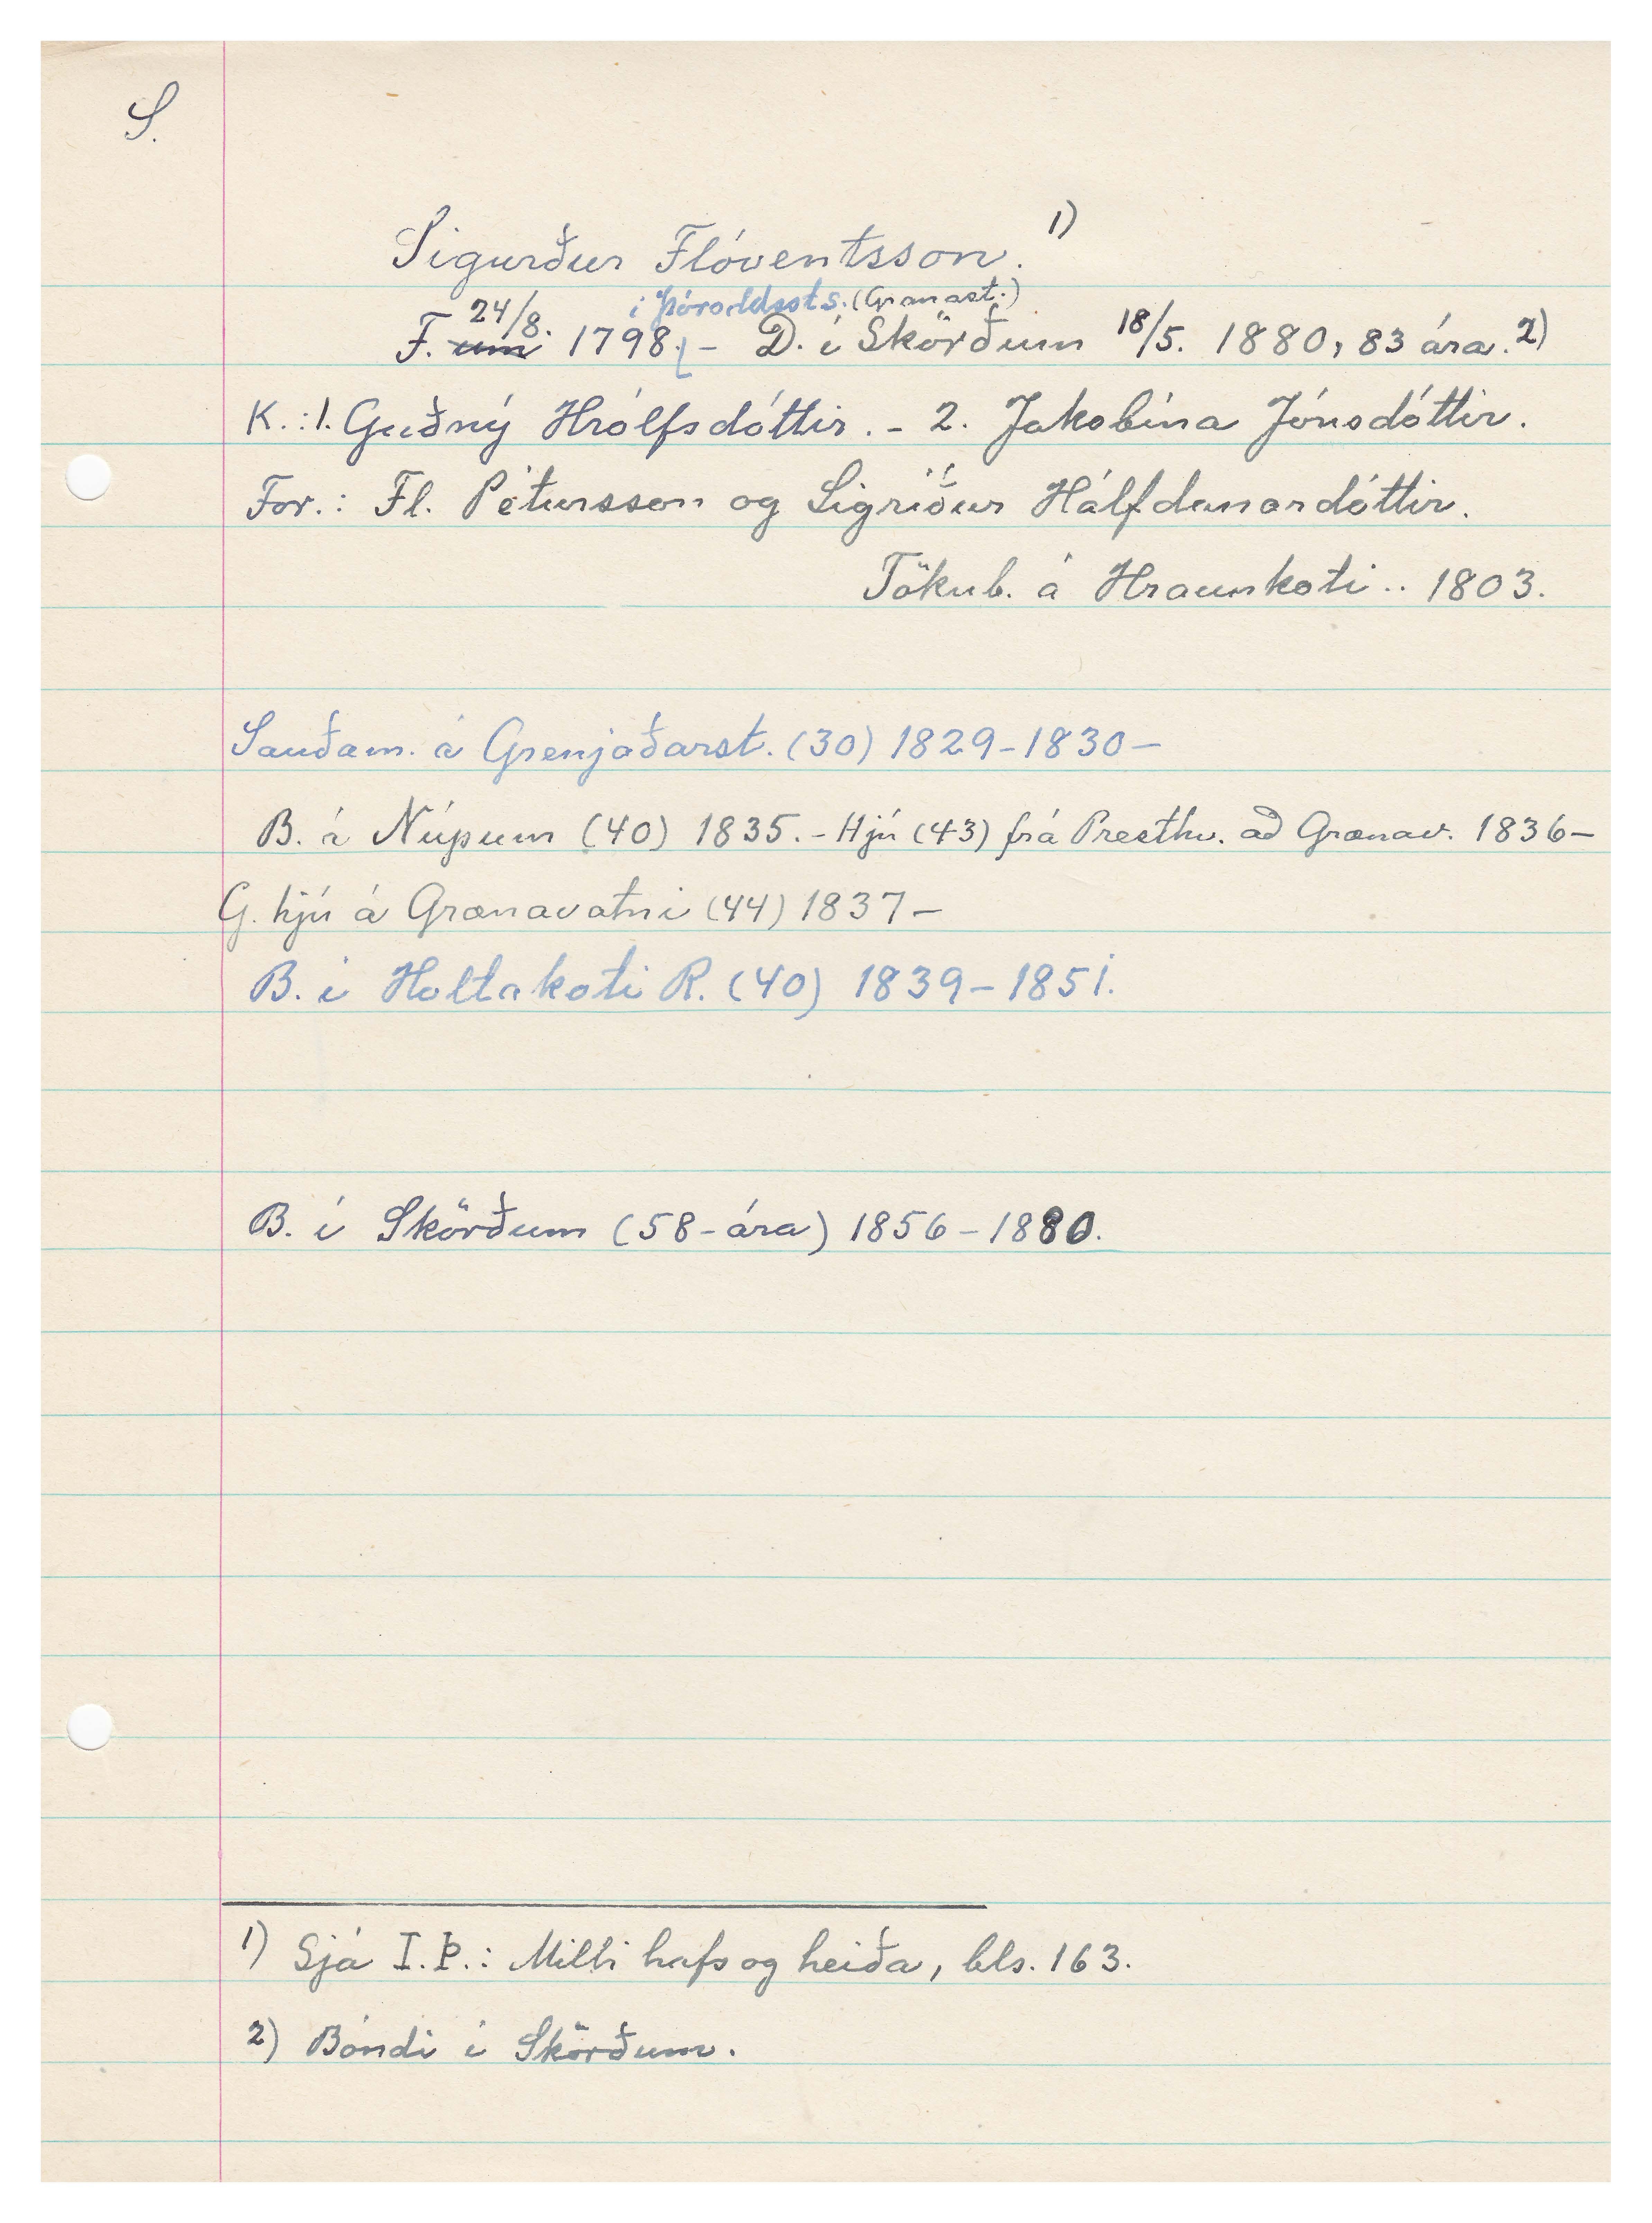 S.
Sigurður Flóventsson. 1)
í Þóroddsst s. (Granast.)
F. 24/8. um 1798. - D. í Skörðum 18/5. 1880, 83 ára. 2)
K.: 1. Guðný Hrólfsdóttir. - 2. Jakobína Jónsdóttir.
For.: Fl. Pétursson og Sigríður Hálfdanardóttir.
Tökub. á Hraunkoti .. 1803.
Sauðam. á Grenjaðarst. (30) 1829-1830-
B. á Núpum (40) 1835. - Hjú (43) frá Presthv. að Grænav. 1836-
G. hjú á Grænavatni (44) 1837-
B. í Holtakoti R. (40) 1839-1851.
B. í Skörðum (58-ára) 1856-1880.
1) Sjá I.Þ.: Milli hafs og heiða, bls. 163.
2) Bóndi í Skörðum.